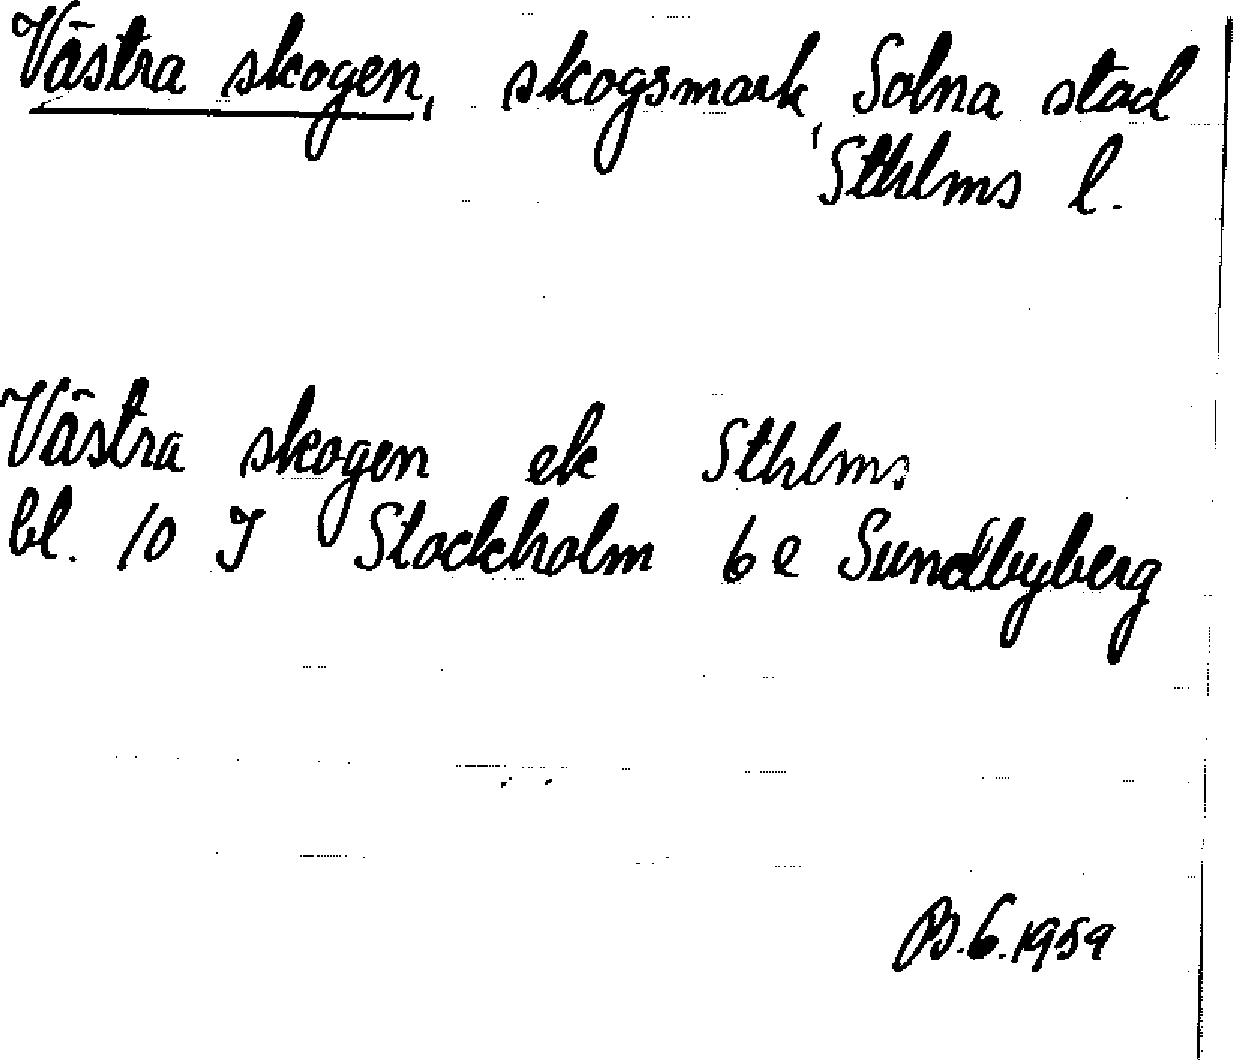 Västra skogen, skogsmark, Solna stad
Sthlms l.
Västra skogen ek Sthlms
bl. 10 I Stockholm 6 e Sundbyberg
B.G.1959